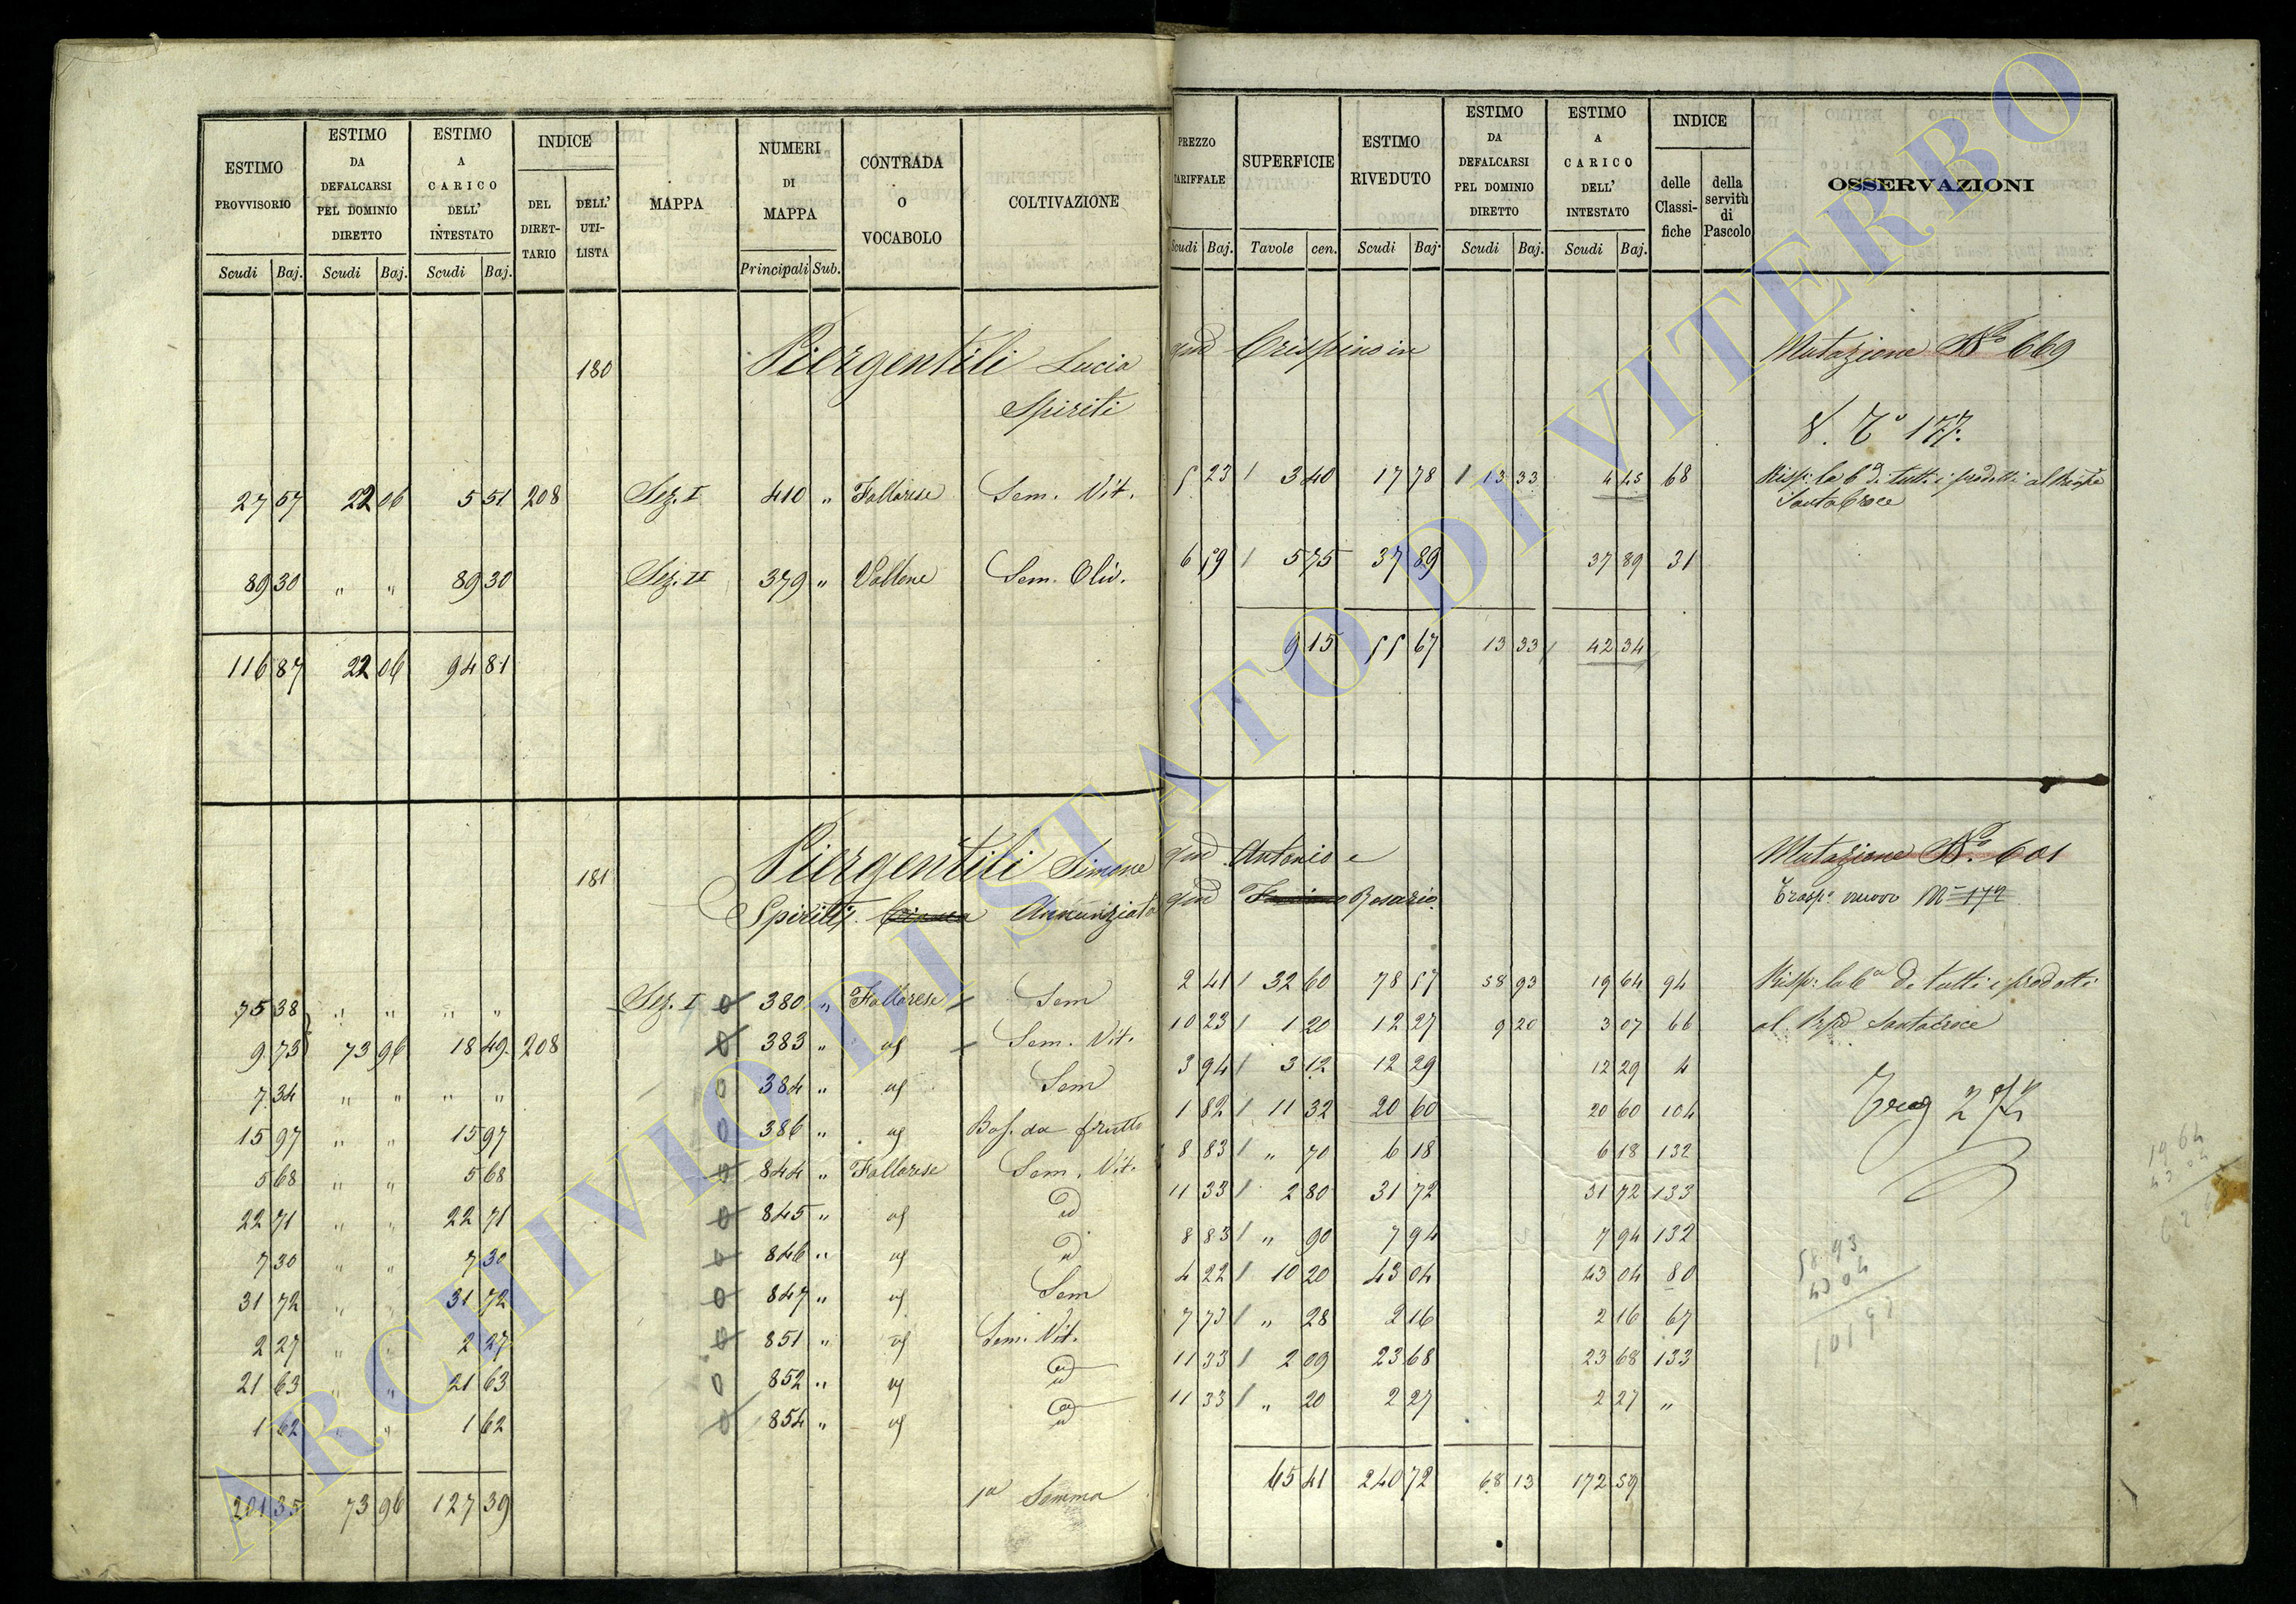 ESTIMO PROVVISORIO
ESTIMO DA DEFALCARSI PEL DOMINIO DIRETTO
ESTIMO A CARICO DELL' INTESTATO
INDICE
DEL DIRET-TARIO
DELL' UTI-LISTA
MAPPA
NUMERI DI MAPPA
CONTRADA O VOCABOLO
COLTIVAZIONE
PREZZO TARIFFALE
SUPERFICIE
ESTIMO RIVEDUTO
ESTIMO DA DEFALCARSI PEL DOMINIO DIRETTO
ESTIMO A CARICO DELL' INTESTATO
INDICE
delle Classi-fiche
della servitù di Pascolo
OSSERVAZIONI
Scudi Baj. Scudi Baj. Scudi Baj. Principali Sub. Scudi Baj. Tavole cen. Scudi Baj. Scudi Baj. Scudi Baj.
180 Piergentili Lucia qud Crispino in Mutazione No 669
Spiriti
177
27 57 22 06 5 51 208 Sez. I 410 " Fallarese Sem. Vit. 5 23 3 40 17 78 13 33 4 45 68 Risp: la 6a di tutti i prodotti al
Santa Croce
89 30 " " 89 30 Sez. II 379 " Vallone Sem. Oliv. 6 59 5 75 37 89 37 89 31
116 87 22 06 94 81 9 15 55 67 13 33 42 34
181 Piergentili Simone qud Antonio e Mutazione No. 601
Spiriti Annunziata qud Rosario Trasp. nuovo
75 38 " " " " Sez. I 380 " Fallarese Sem 2 41 32 60 78 57 58 93 19 64 94 Risp: la 6a di tutti i prodotti
9 73 73 96 18 49 208 383 " " Sem. Vit. 10 23 1 20 12 27 9 20 3 07 66 al Santacroce
7 34 " " " " 384 " Sem 3 94 3 12 12 29 12 29 4
15 97 " " 15 97 386 " Bos. da frutto 1 82 11 32 20 60 20 60 104
5 68 " " 5 68 844 " Fallarese Sem. Vit. 8 83 " 70 6 18 6 18 132
22 71 " " 22 71 845 " id 11 33 2 80 31 72 31 72 133
7 30 " " 7 30 846 " id 8 83 " 90 7 94 7 94 132
31 72 " " 31 72 847 " Sem 4 22 10 20 43 04 43 04 80
2 27 " " 2 27 851 " Sem. Vit. 7 73 " 28 2 16 2 16 67
21 63 " " 21 63 852 " id 11 33 2 09 23 68 23 68 133
1 62 " " 1 62 854 " id 11 33 " 20 2 27 2 27 "
201 35 73 96 127 39 1a Somma 65 41 240 72 68 13 172 59
19 64
43 04
58 93
43 04
101 97
ARCHIVIO DI STATO DI VITERBO